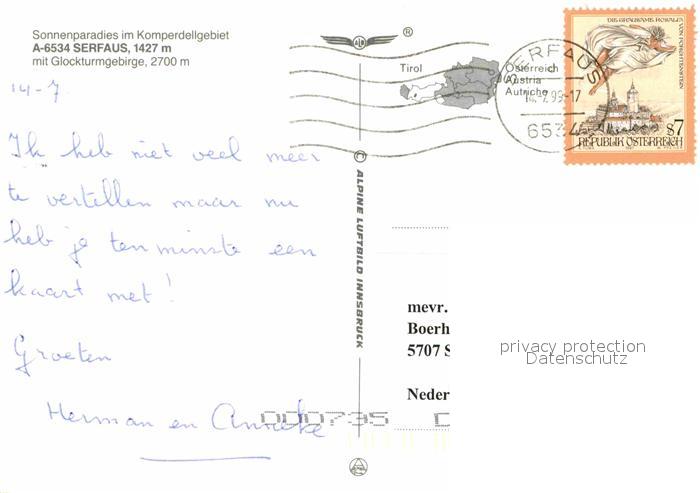 Sonnenparadies im Komperdellgebiet
A-6534 SERFAUS, 1427 m
mit Glockturmgebirge, 2700 m
14-7
Ik heb niet veel meer
te vertellen maar nu
heb je tenminste een
kaart met!
Groeten
Herman en Anneke
ALPINE LUFTBILD INNSBRUCK
®
Tirol
Österreich
Austria
Autriche
SERFAUS
14.7.99-17
6534
DIE GRAUSAME ROSALIA VON FORCHTENSTEIN
S7
REPUBLIK ÖSTERREICH
mevr.
Boerh
5707 S
Neder
000735
privacy protection
Datenschutz